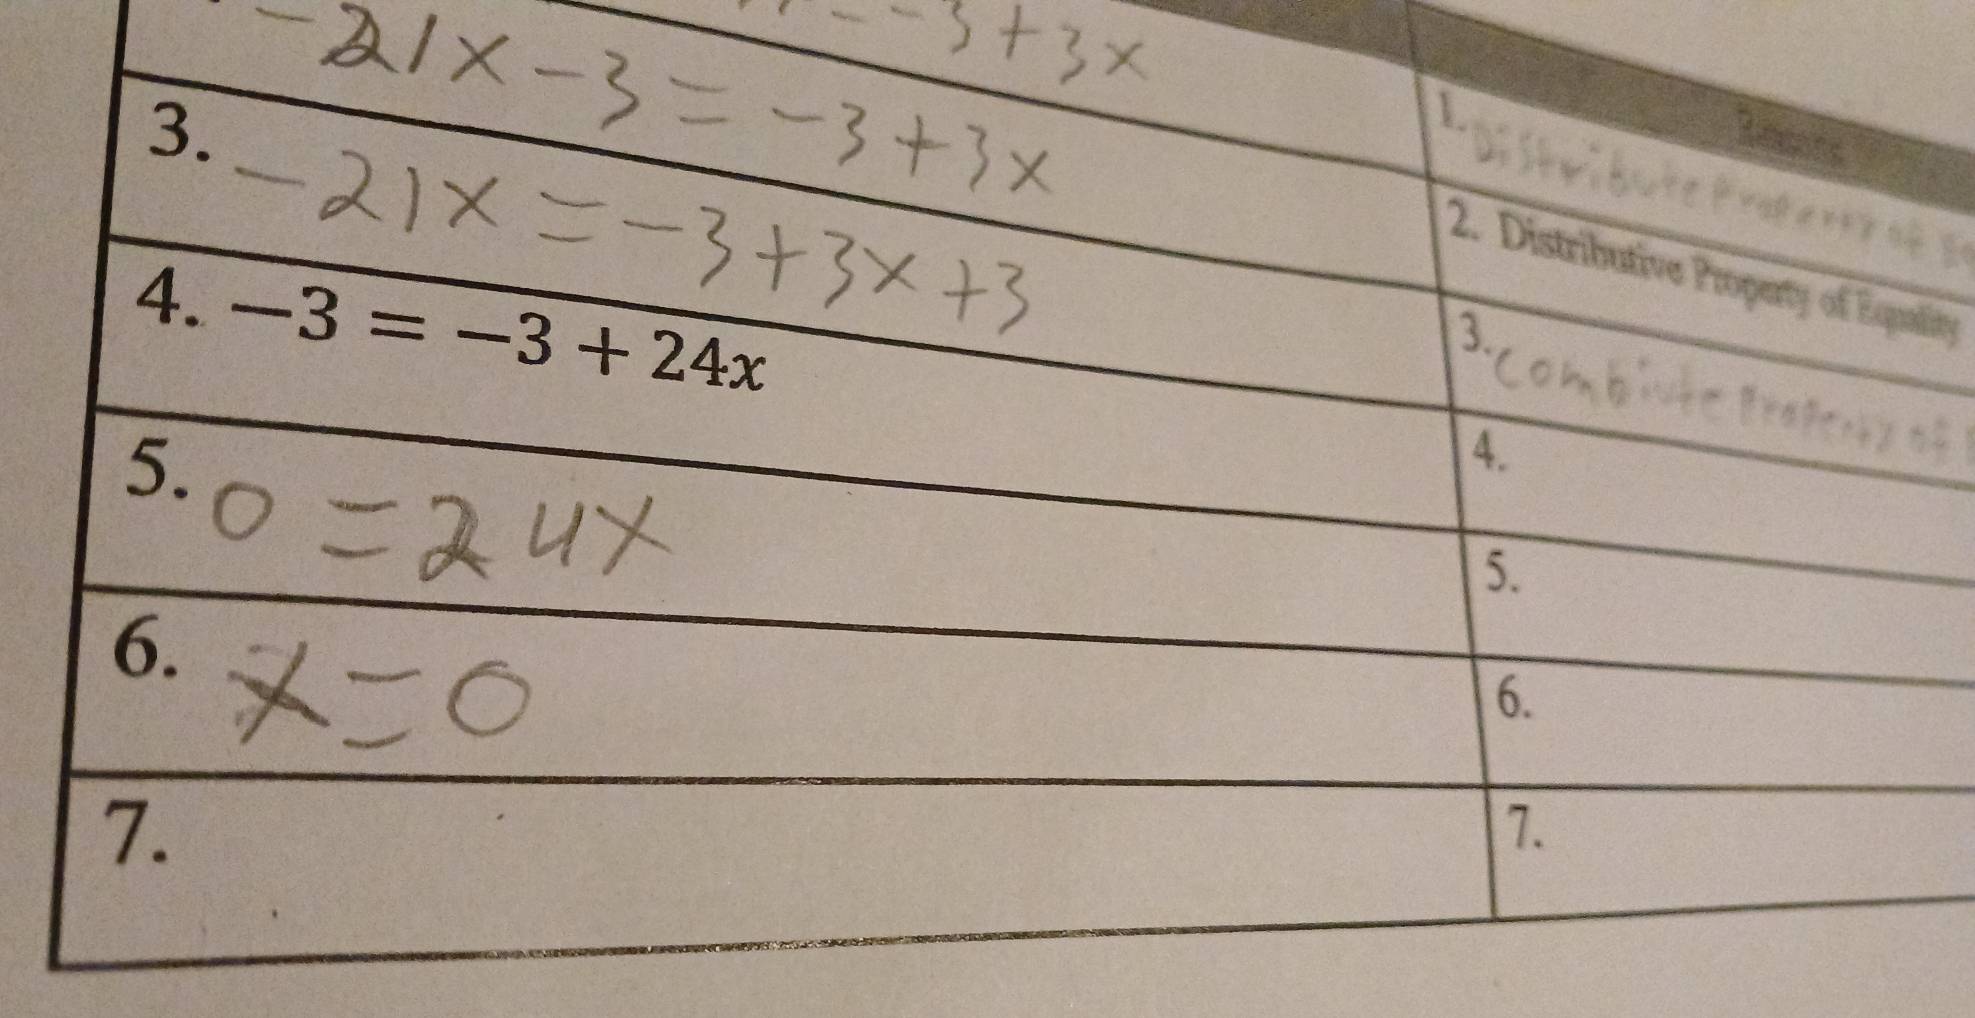 -3+3x
-21x-3=-3+3x
3. -21x=-3+3x+3
4. −3 = −3 + 24x
5. 0=24x
6. x=0
7.
Reasons
1. Distribute Property of
2. Distributive Property of Equality
3. Combinte Property of
4.
5.
6.
7.